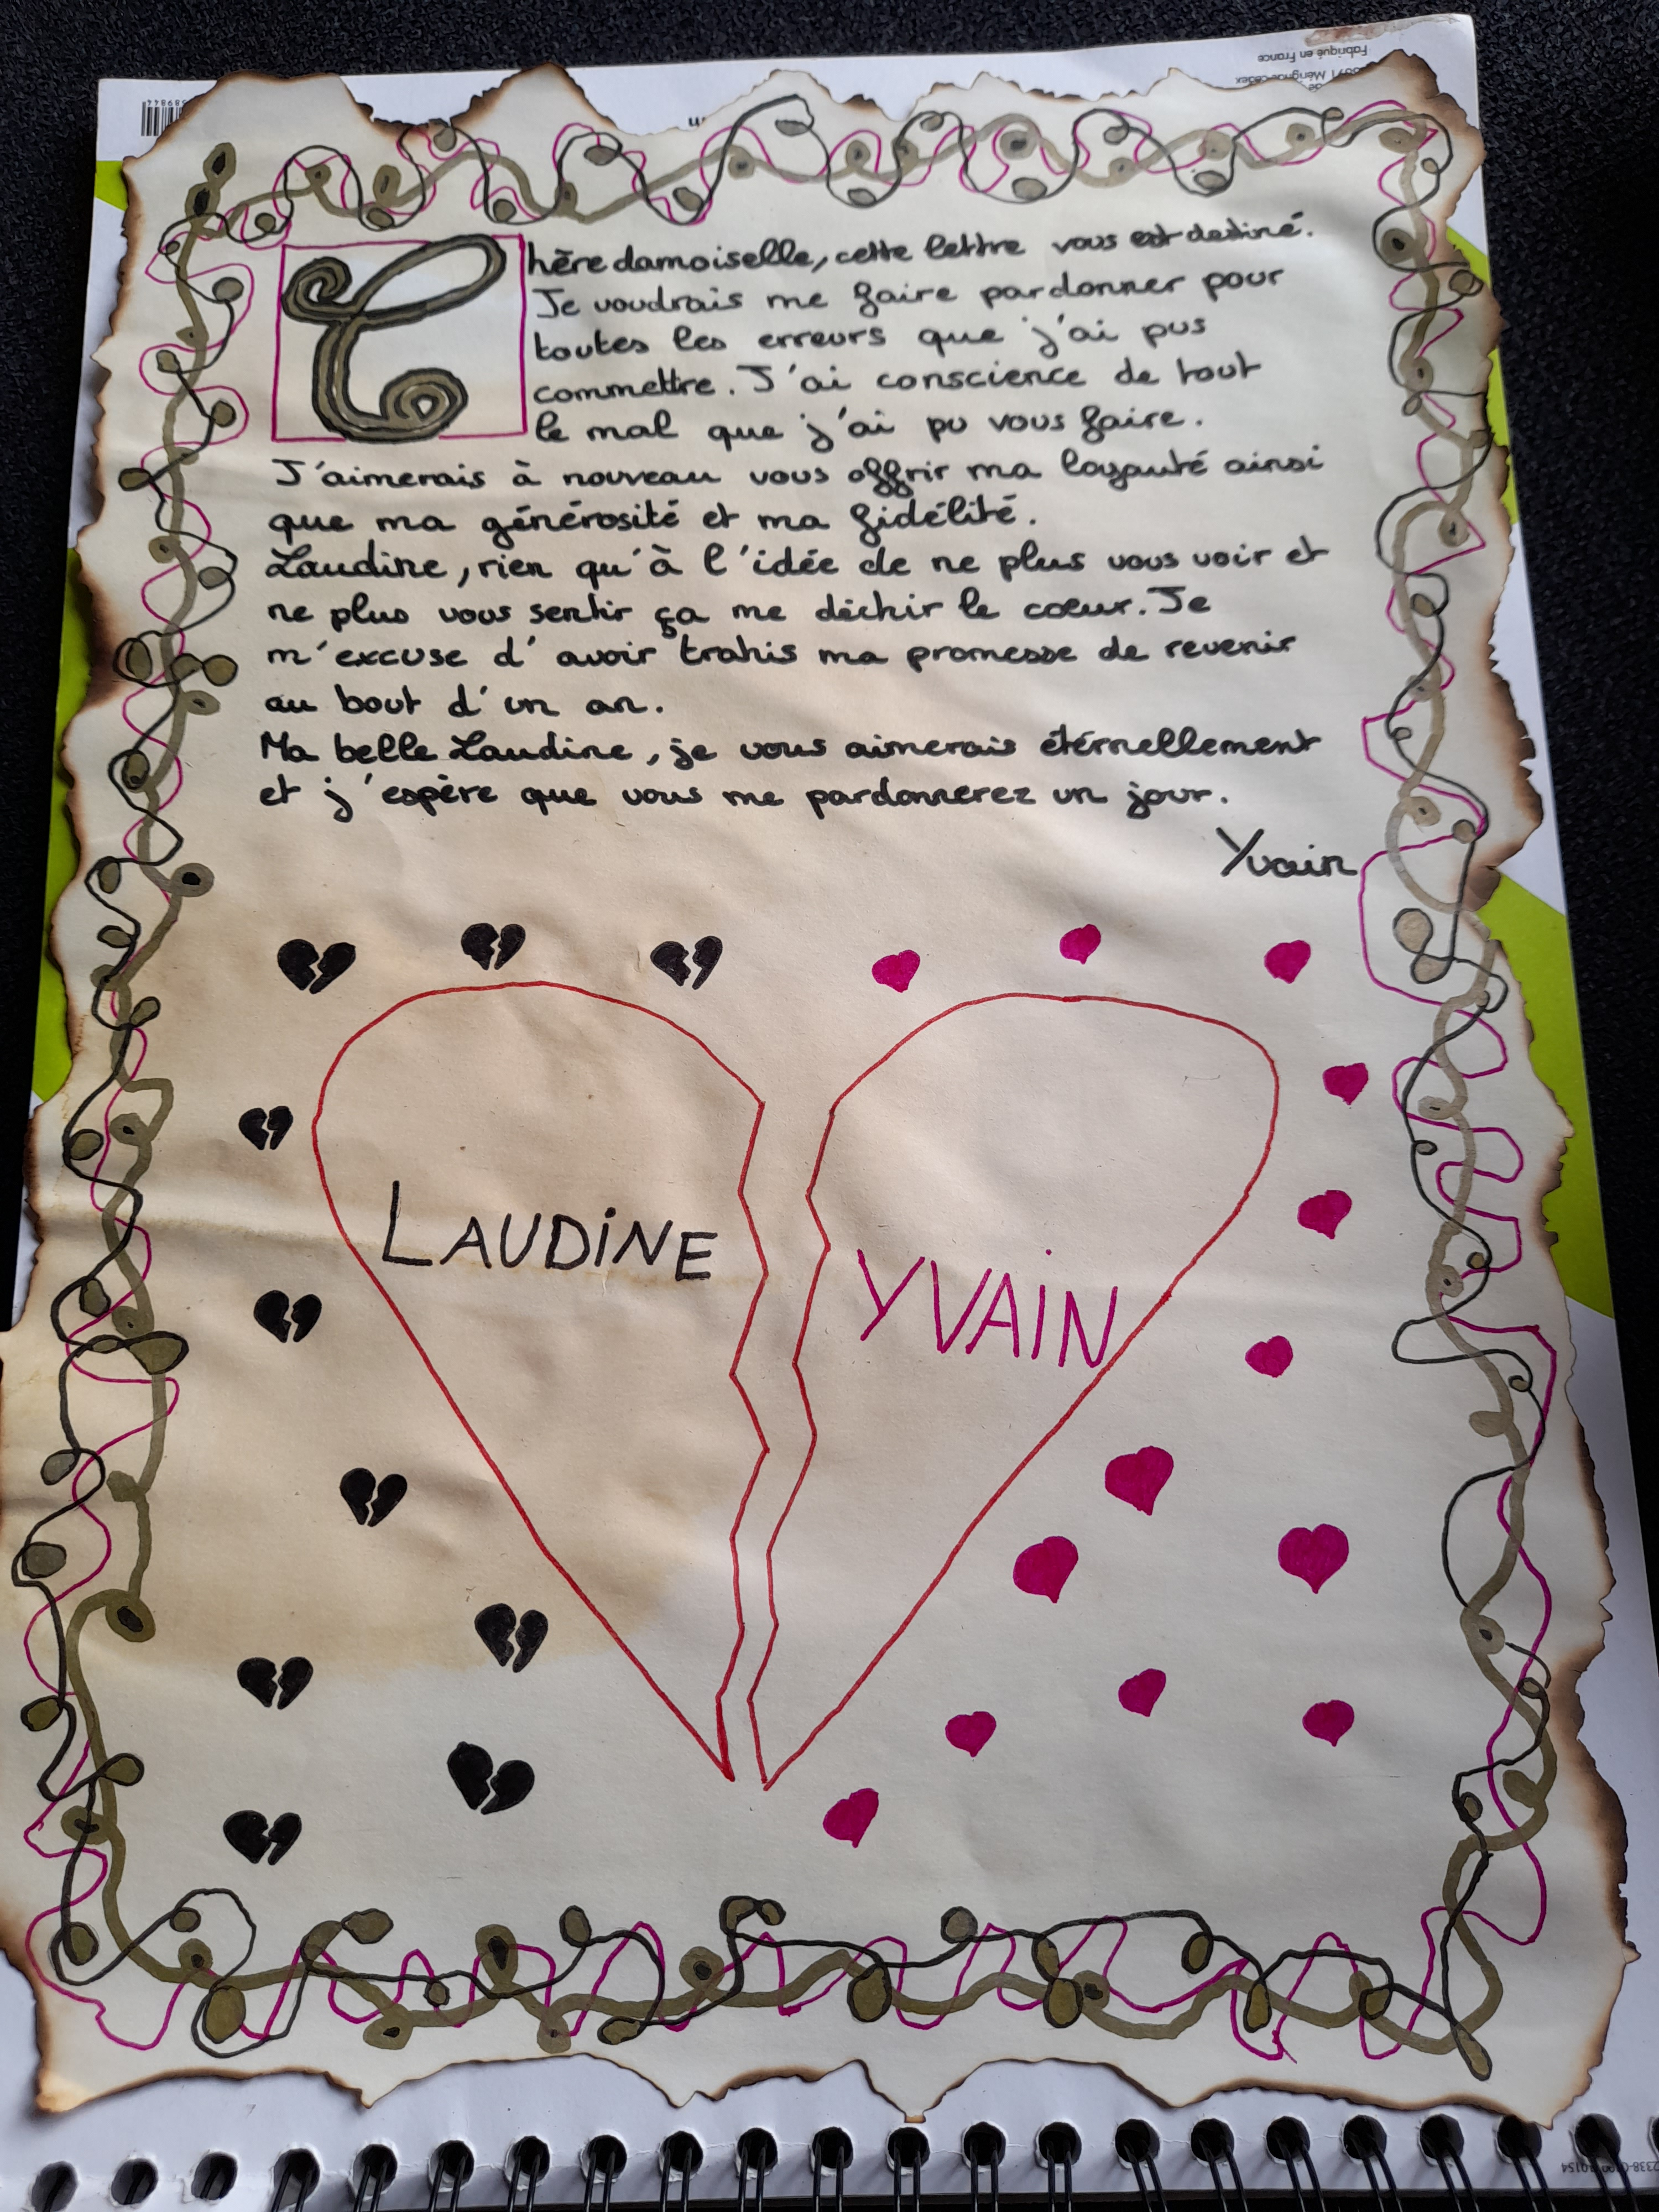 Fabriqué en France
Mérignac cedex
Chère damoiselle, cette lettre vous est destiné.
Je voudrais me faire pardonner pour
toutes les erreurs que j'ai pus
commettre. J'ai conscience de tout
le mal que j'ai pu vous faire.
J'aimerais à nouveau vous offrir ma loyauté ainsi
que ma générosité et ma fidélité.
Laudine, rien qu'à l'idée de ne plus vous voir et
ne plus vous sentir ça me déchir le cœur. Je
m'excuse d'avoir trahis ma promesse de revenir
au bout d'un an.
Ma belle Laudine, je vous aimerais étérnellement
et j'espère que vous me pardonnerez un jour.
Yvain
LAUDINE
YVAIN